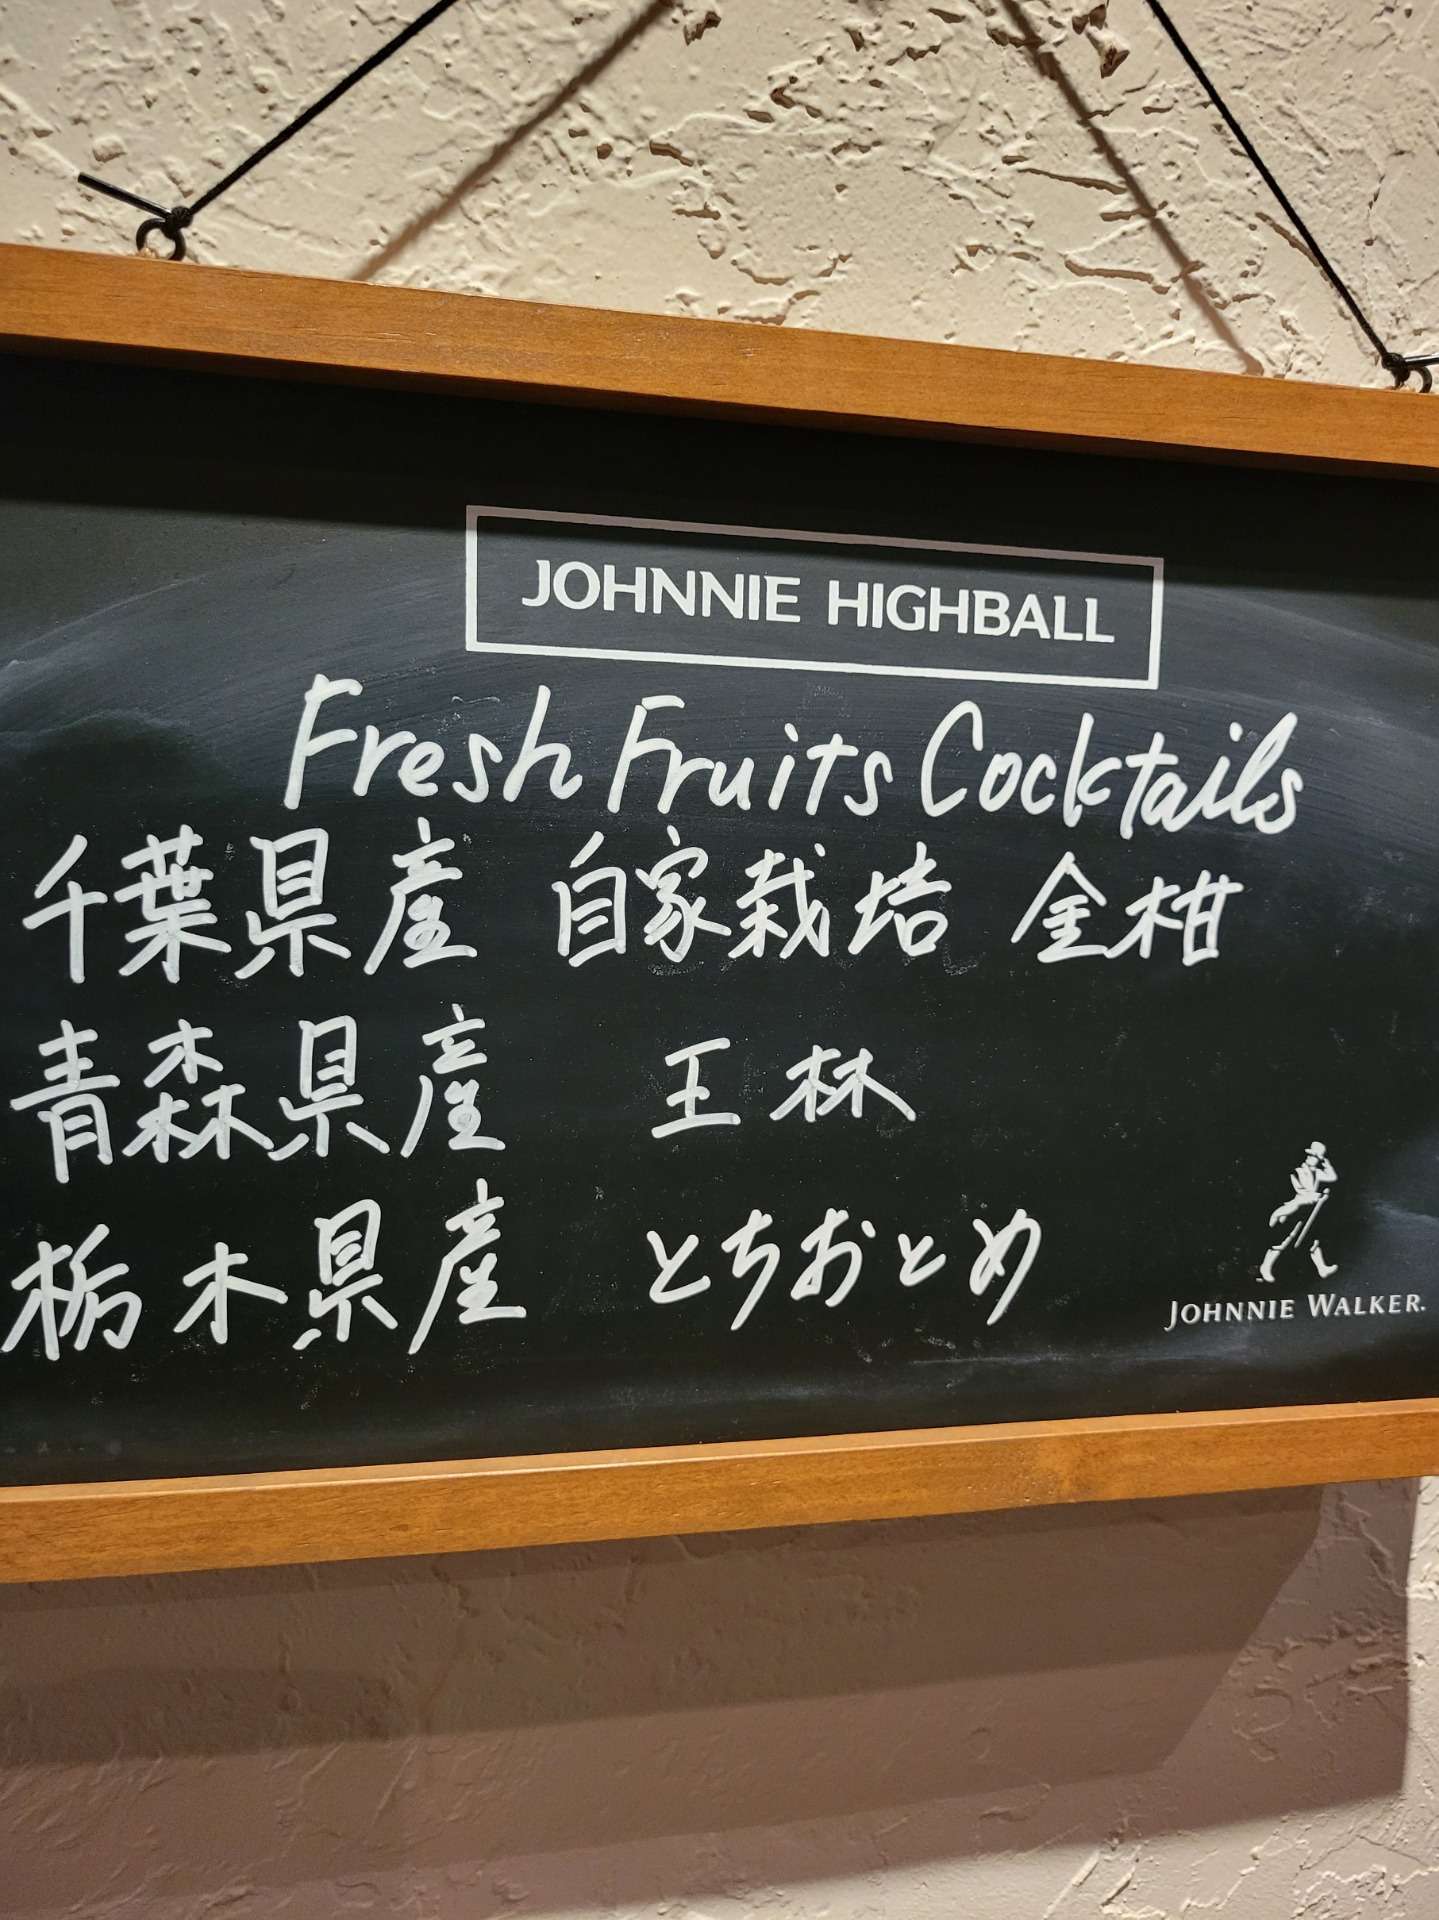 JOHNNIE HIGHBALL
Fresh Fruits Cocktails
千葉県産 自家栽培 金柑
青森県産 王林
栃木県産 とちおとめ
JOHNNIE WALKER.